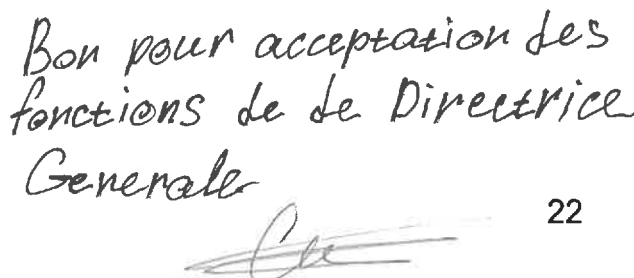 Bon pour acceptation des
fonctions de de Directrice
Generale
22